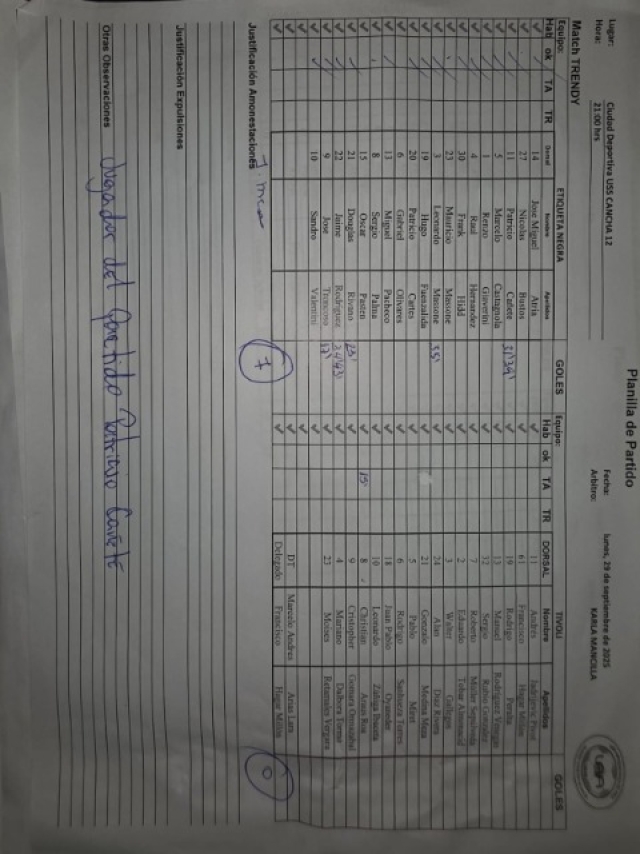 Planilla de Partido
Lugar: Ciudad Deportiva USS CANCHA 12 Fecha: lunes, 29 de septiembre de 2025
Hora: 21:00 hrs Arbitro: KARLA MANCILLA
Match TRENDY
Equipo: ETIQUETA NEGRA GOLES Equipo: TIVOLI GOLES
Hab ok TA TR Dorsal Nombre Apellidos Hab ok TA TR DORSAL Nombre Apellidos
14 Jose Miguel Atria 11 Andres
27 Nicolas Bustos 61 Francisco Hagar Millan
11 Patricio Cañete 31' 39' 19 Rodrigo Peralta
5 Marcelo Castagnola 13 Manuel Rodriguez
1 Renzo Giaverini 12 Sergio Rubio Gonzalez
4 Raul Hernandez 7 Roberto Muñoz Sepulveda
30 Frank Hidd 2 Eduardo Tobar
23 Mauricio Massone 3 Walter Gallegos
3 Leonardo Massone 55' 24 Alan Diaz Rivera
19 Hugo Fuenzalida 21 Gonzalo Medina Meza
20 Patricio Cartes 5 Pablo Miret
6 Gabriel Olivares 6 Rodrigo Sanhueza Torres
13 Miguel Pacheco 18 Juan Pablo Oyaneder
8 Sergio Palma 10 Leonardo Zuñiga
15 Oscar Pasten 15' 8 Christian Araya
21 Douglas Rivano 25' 9 Cristopher
22 Jaime Rodriguez 24' 43' 4 Mariano
9 Jose Troncoso 17' 23 Moises Retamales Vergara
10 Sandro Valentini
DT Marcelo Andres Arias Lara
7 Delegado Francisco Hagar Millan 0
Justificación Amonestaciones
Justificación Expulsiones
Otras Observaciones Jugador del Partido Patricio Cañete